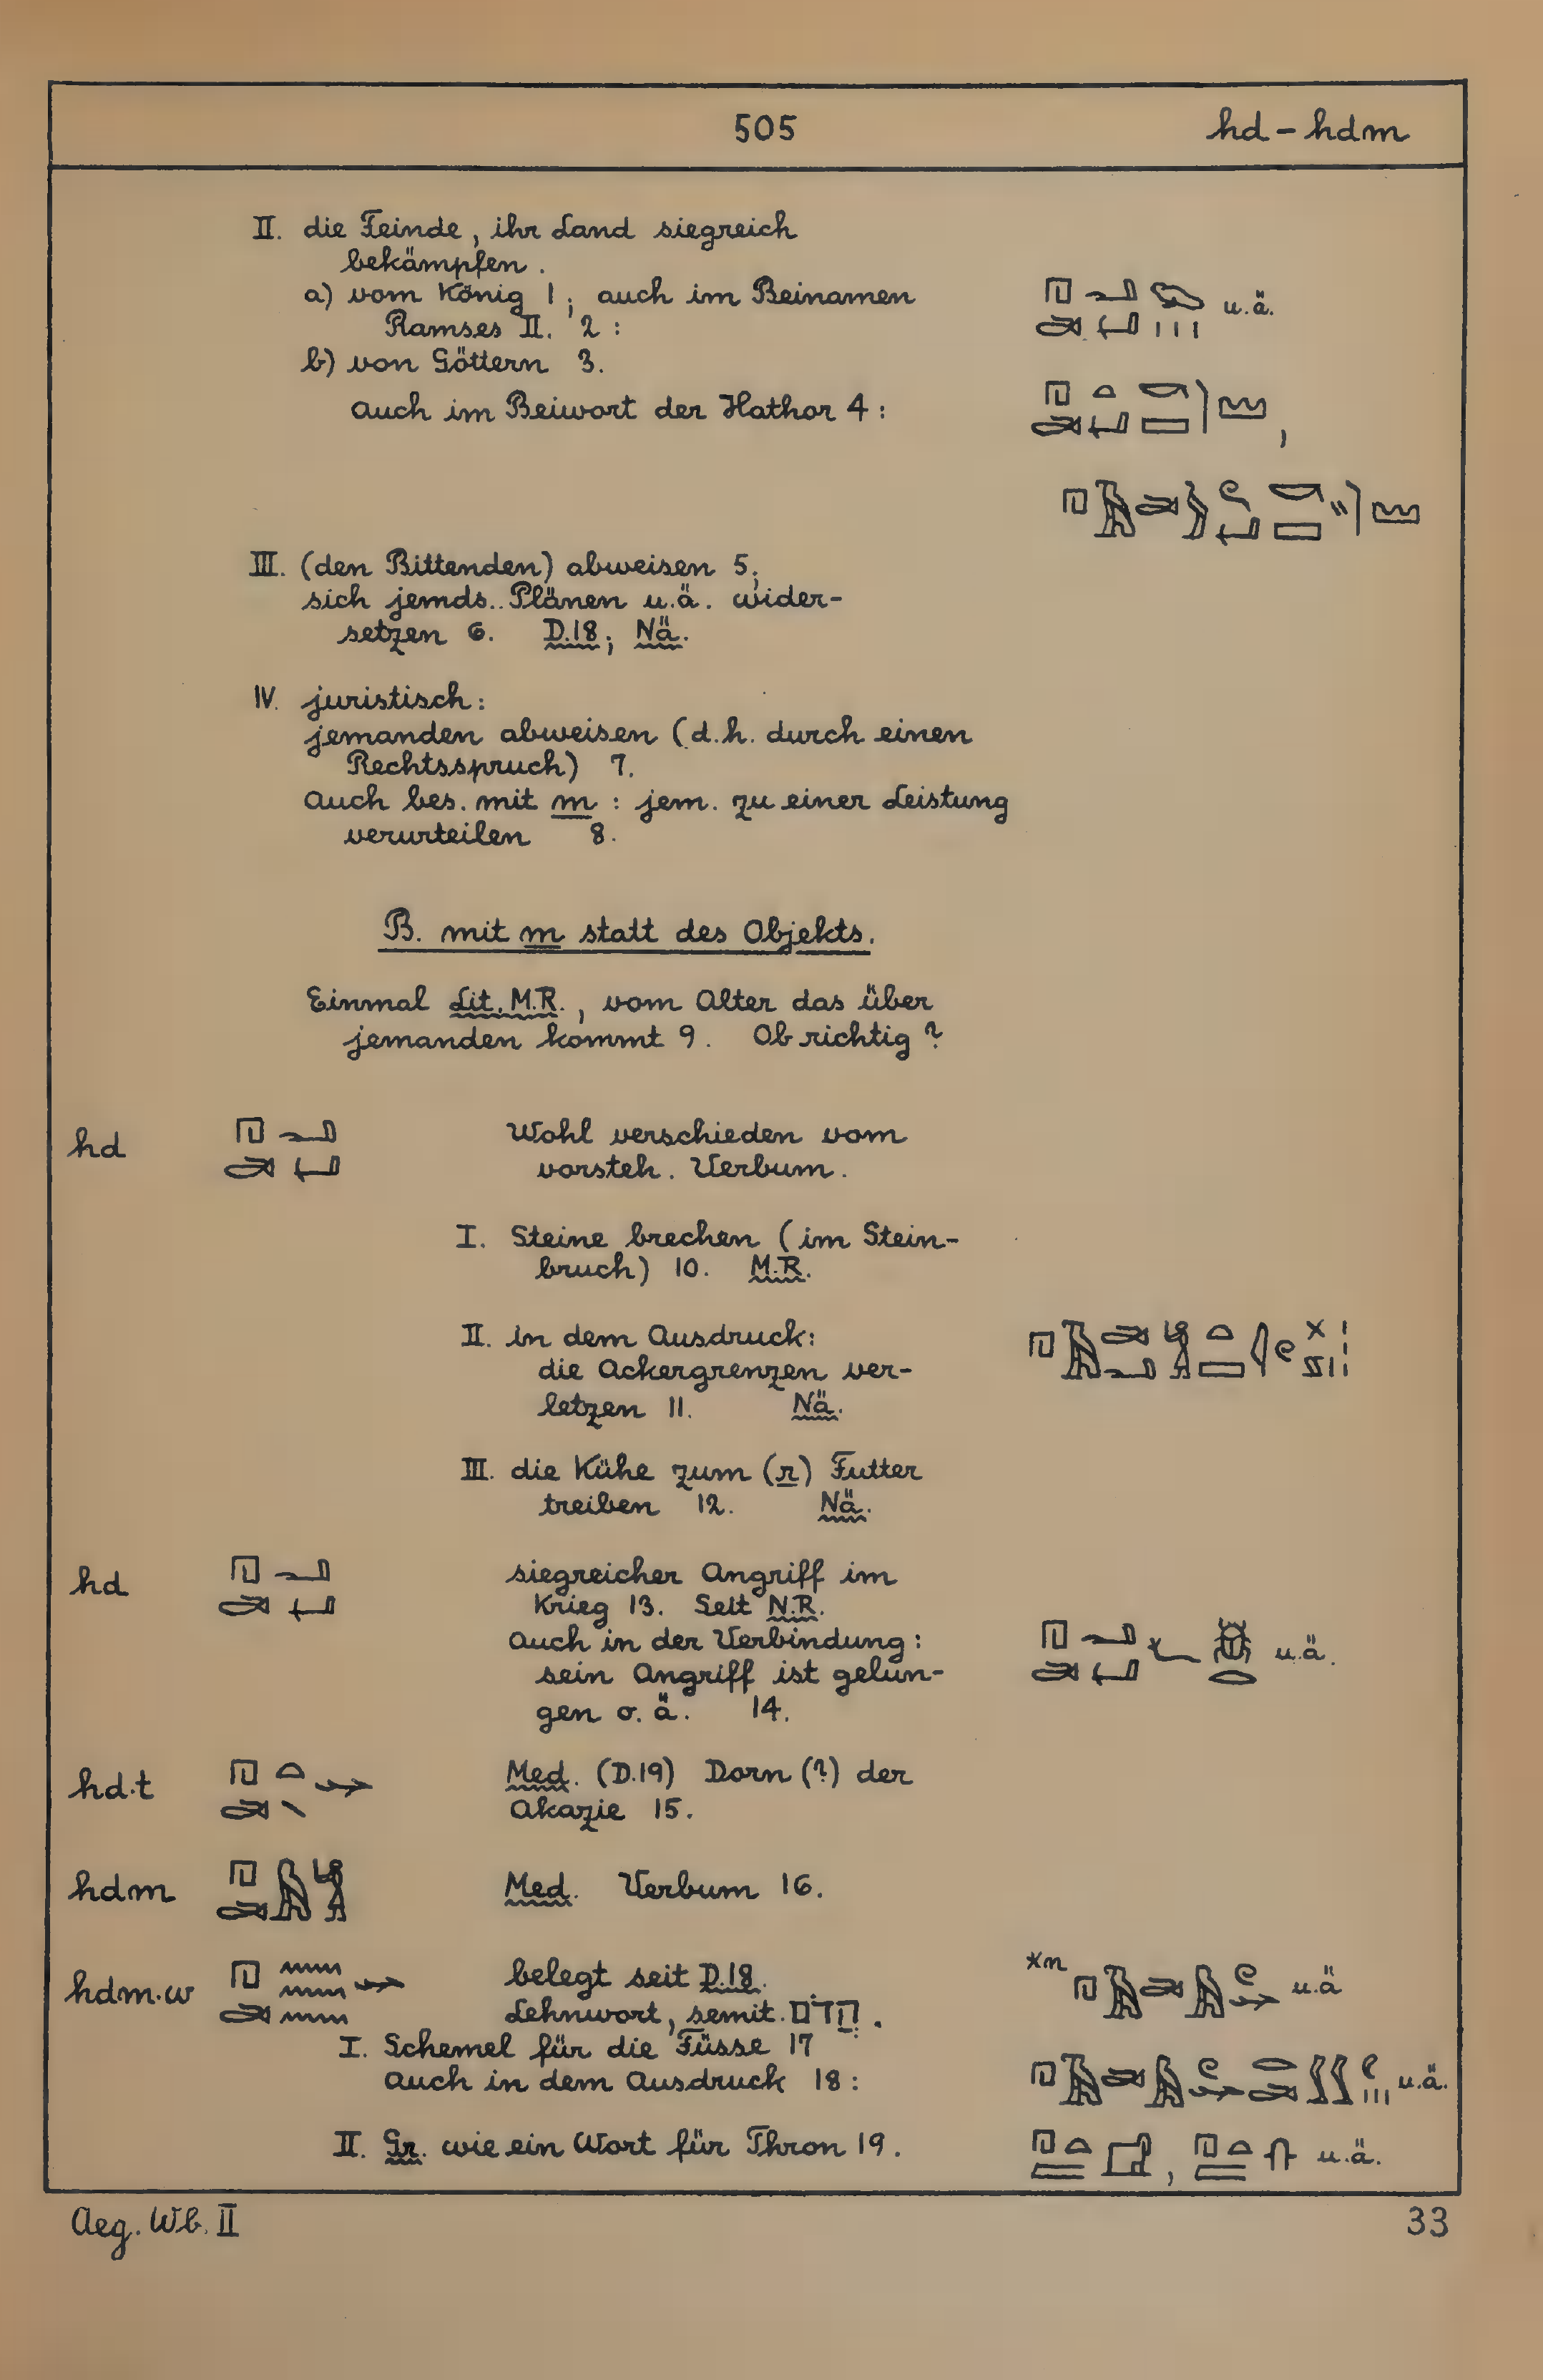 505 hd - hdm
II. die Feinde, ihr Land siegreich
bekämpfen.
a) vom König 1; auch im Beinamen
Ramses II. 2 : u.ä.
b) von Göttern 3.
auch im Beiwort der Hathor 4 : ,
III. (den Bittenden) abweisen 5;
sich jemds. Plänen u.ä. wider-
setzen 6. D.18; Nä.
IV. juristisch:
jemanden abweisen (d.h. durch einen
Rechtsspruch) 7.
auch bes. mit m : jem. zu einer Leistung
verurteilen 8.
B. mit m statt des Objekts.
Einmal Lit. M.R., vom Alter das über
jemanden kommt 9. Ob richtig?
hd Wohl verschieden vom
vorsteh. Verbum.
I. Steine brechen (im Stein-
bruch) 10. M.R.
II. in dem Ausdruck:
die Ackergrenzen ver-
letzen 11. Nä.
III. die Kühe zum (r) Futter
treiben 12. Nä.
hd siegreicher Angriff im
Krieg 13. Seit N.R.
auch in der Verbindung:
sein Angriff ist gelun- u.ä.
gen o.ä. 14.
hd·t Med. (D.19) Dorn (?) der
Akazie 15.
hdm Med. Verbum 16.
hdm·w belegt seit D.18. *m u.ä
Lehnwort, semit. הֲדֹם.
I. Schemel für die Füsse 17
auch in dem Ausdruck 18: u.ä.
II. Gr. wie ein Wort für Thron 19. , u.ä.
Aeg. Wb. II 33